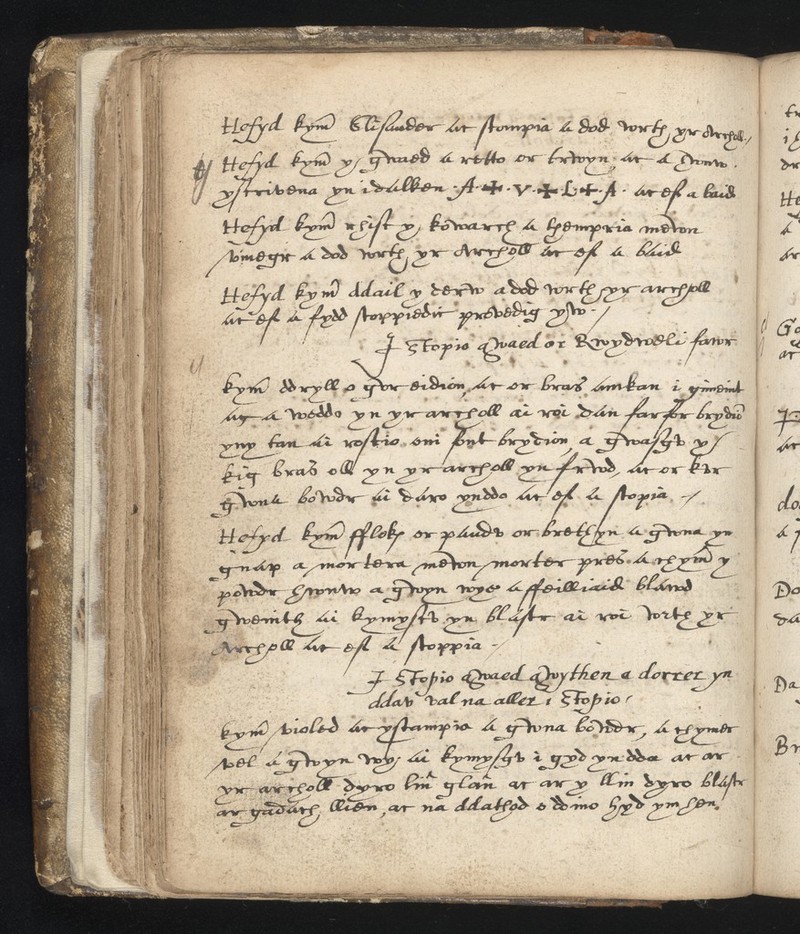 Hefyd kym̄ Elisander ac stampia a dod wrth yr archoll
Hefyd kym̄ y gwaed a retto or trwyn ac a hwnw
yscrivena yn i dalken · A ✠ v ✠ L ✠ A · ac ef a baid
Hefyd kym̄ rhisc y kowarch a thempria mewn
vinegr a dod wrth yr archoll ac ef a baid
Hefyd kym̄ ddail y derw a dod wrth yr archoll
ac ef a fydd stoppiedic prevedig yw
I Stopio gwaed or fawr
kym̄ ddryll o gic eidion ac or bras amkan i gimeint
ag a weddo yn yr archoll ai roi dan far for brydio
yny tan ai rostio oni font brydion a gwasgv y
kig bras oll yn yr archoll yn frwd, ac or kic
gwna bowdr ai daro ynddo ac ef a stopia
Hefyd kym̄ fflokys or pandv or brethyn a gwna yn
gnap a mortera mewn morter pres a chym̄ y
powdr hwnw a gwyn wye a ffeilliaid blawd
gwenith ai kymyscv yn blastr ai roi wrth yr
Archoll ac ef a stoppia
I Stopio gwaed gwythen a dorrer yn
ddav val na aller i Stopio
kym̄ violed ac ystampia a gwna bowdr, a chymer
vel a gwyn wy, ai kymysgv i gyd yn dda ac ar
yr archoll dyro lin̄ glan ac ar y llin dyro blastr
ar gadach llien, ac na ddathod o ddino hyd ymhen